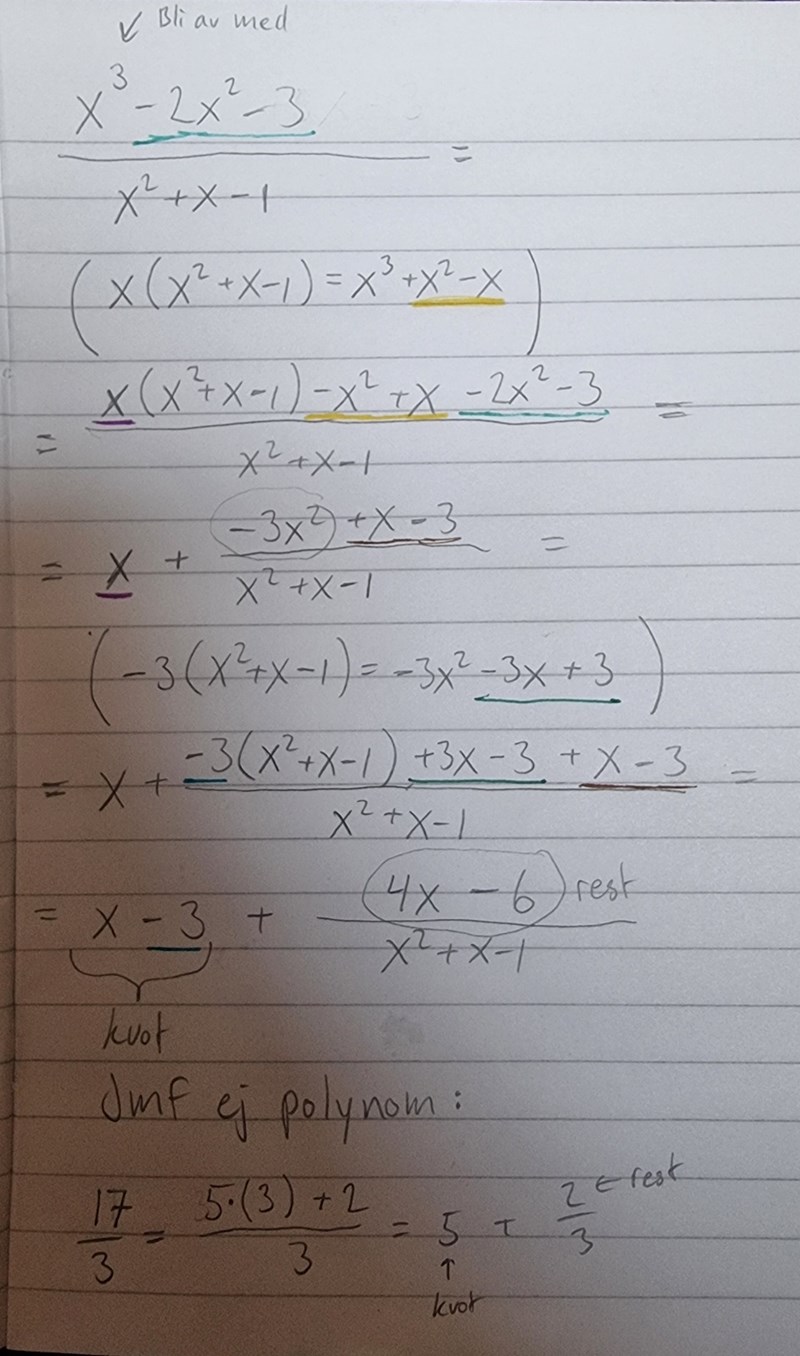 ↙ Bli av med
x³ - 2x² - 3
x² + x - 1
=
( x(x² + x - 1) = x³ + x² - x )
= x(x² + x - 1) - x² + x - 2x² - 3 =
x² + x - 1
= x + -3x² + x - 3 =
x² + x - 1
( -3(x² + x - 1) = -3x² - 3x + 3 )
= x + -3(x² + x - 1) + 3x - 3 + x - 3 =
x² + x - 1
= x - 3 + 4x - 6 rest
x² + x - 1
kvot
Jmf ej polynom:
17/3 = 5·(3) + 2 / 3 = 5 + 2/3 ← rest
↑
kvot